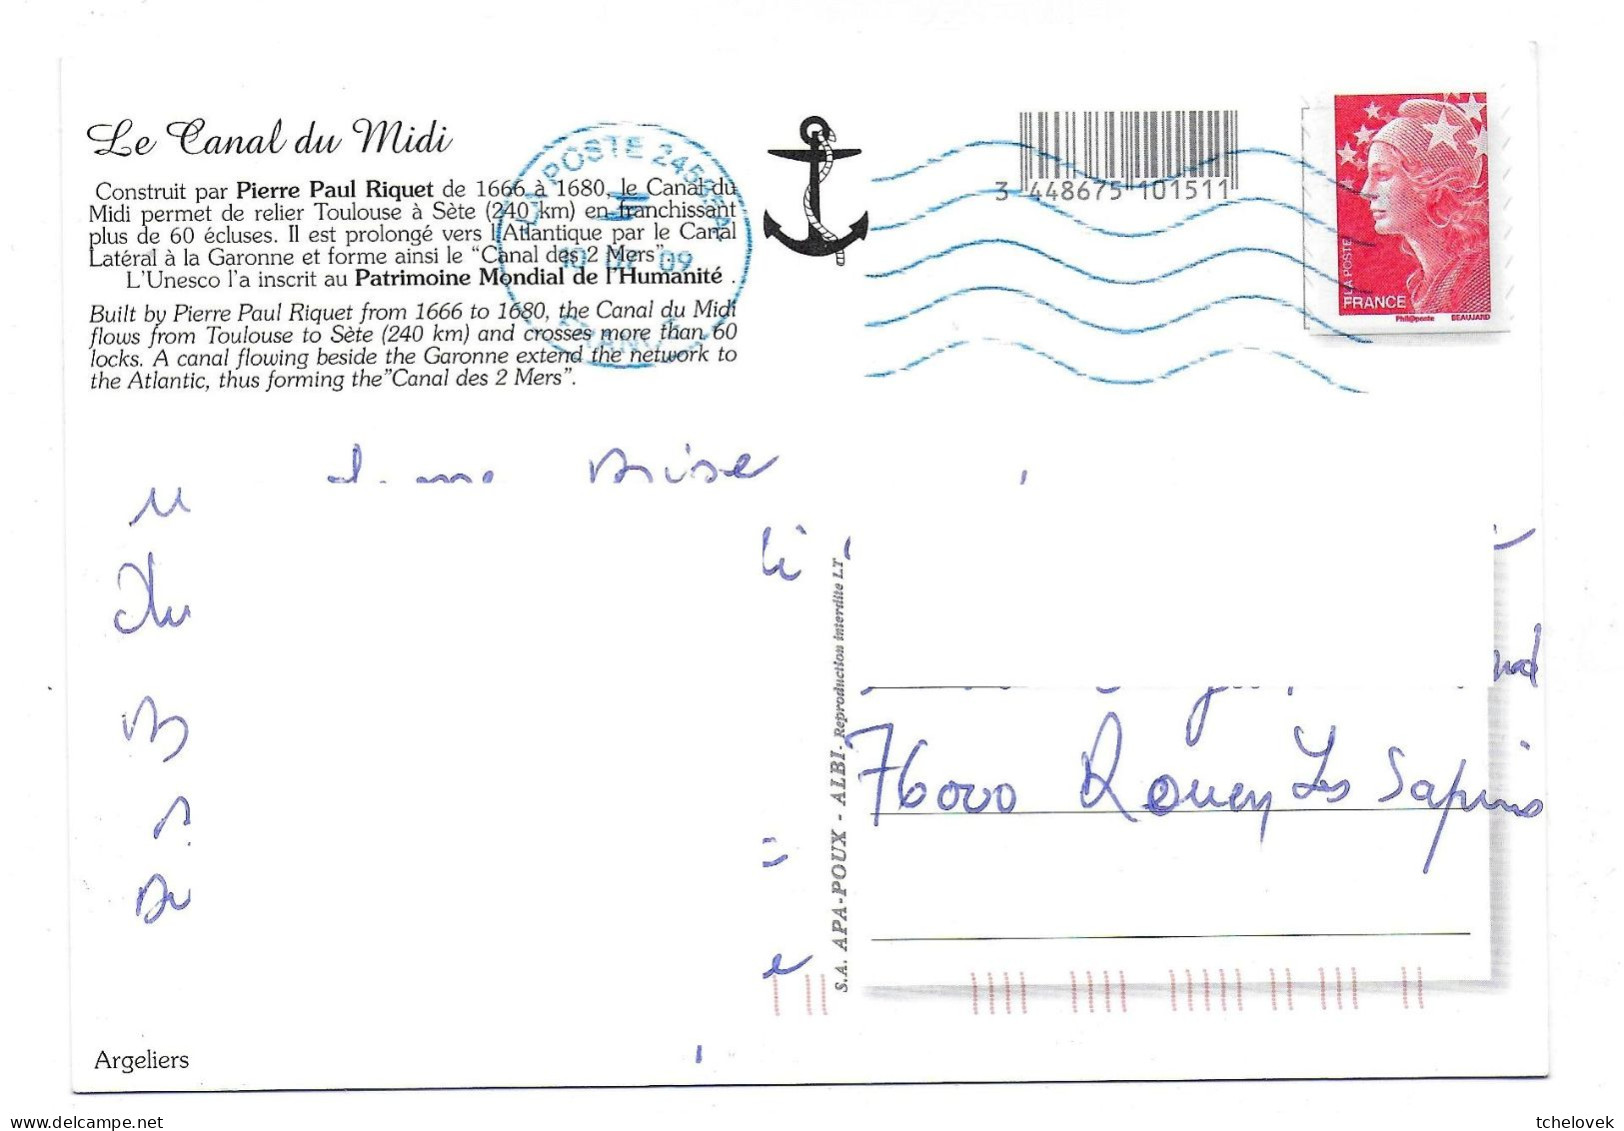 Le Canal du Midi
Construit par Pierre Paul Riquet de 1666 à 1680, le Canal du
Midi permet de relier Toulouse à Sète (240 km) en franchissant
plus de 60 écluses. Il est prolongé vers l'Atlantique par le Canal
Latéral à la Garonne et forme ainsi le "Canal des 2 Mers".
L'Unesco l'a inscrit au Patrimoine Mondial de l'Humanité.
Built by Pierre Paul Riquet from 1666 to 1680, the Canal du Midi
flows from Toulouse to Sète (240 km) and crosses more than 60
locks. A canal flowing beside the Garonne extend the network to
the Atlantic, thus forming the"Canal des 2 Mers".
LA POSTE 24565A
10 07 09
FRANCE
3 448675 101511
LA POSTE
FRANCE
Phil@poste BEAUJARD
S.A. APA-POUX - ALBI. Reproduction interdite LT
76000 Rouen Les Sapins
Argeliers
tchelovek